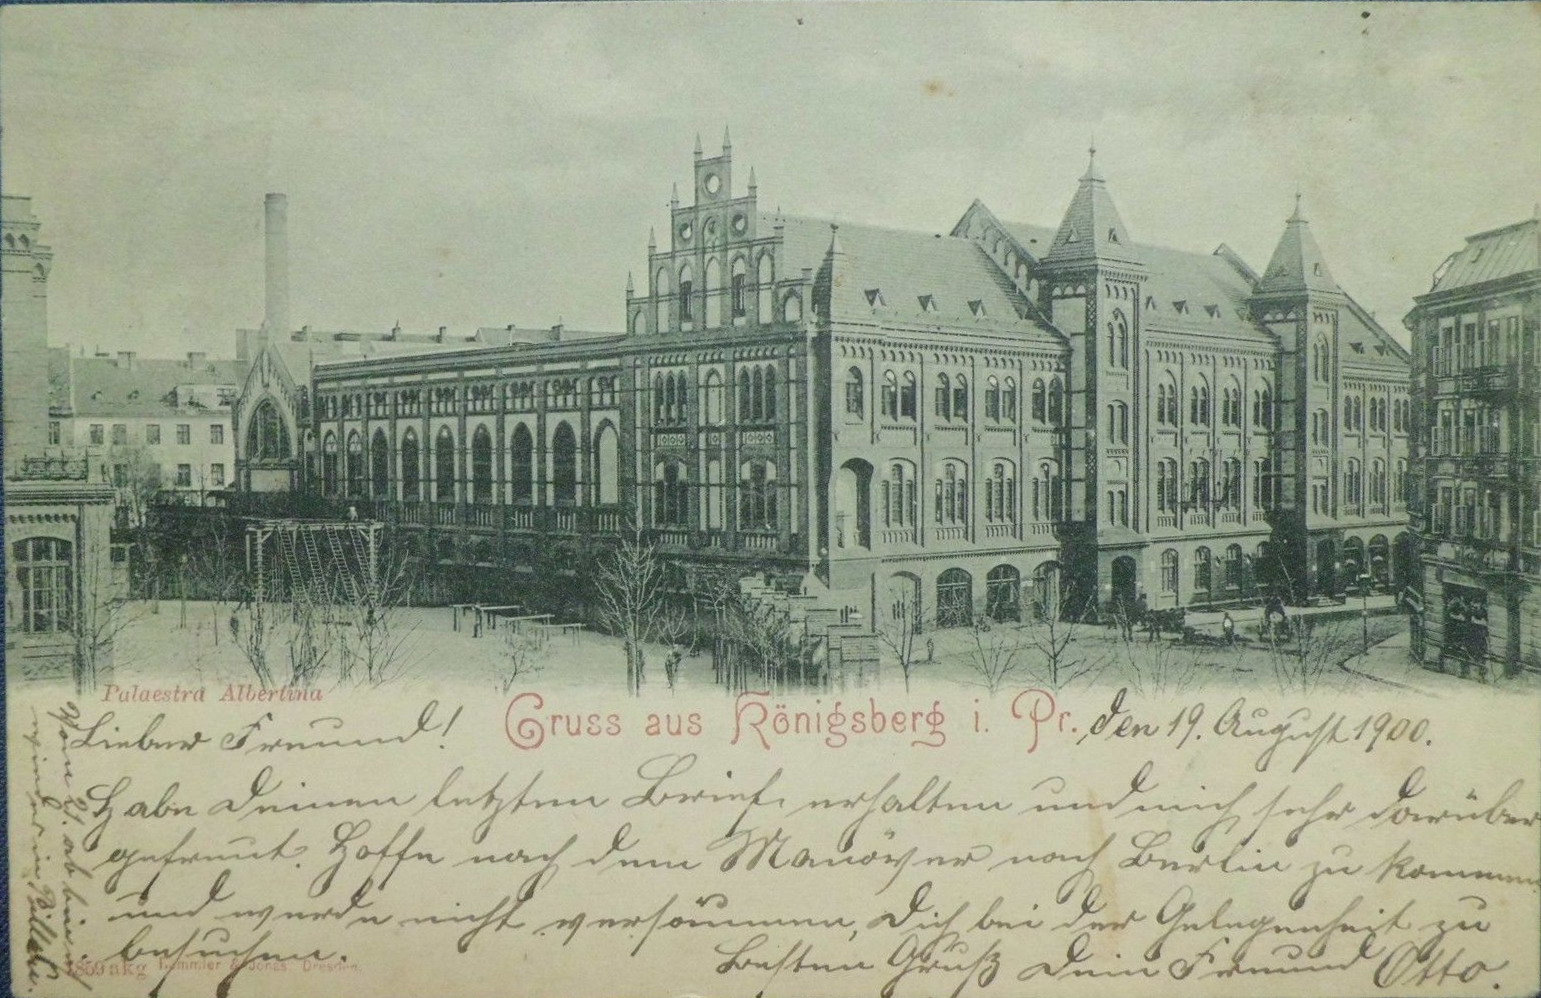 Palaestra Albertina
Gruss aus Königsberg i. Pr.
den 19. August 1900.
Lieber Freund!
Habe Deinen letzten Brief erhalten und mich sehr darüber
gefreut. Hoffe nach dem Manöver nach Berlin zu kommen
und werde nicht versäumen, Dich bei der Gelegenheit zu
besuchen.
Besten Gruß Dein Freund Otto.
Vom 21. ab bin ich
wieder in Pillau.
1859 nkg Hummler & Jonas. Dresden.